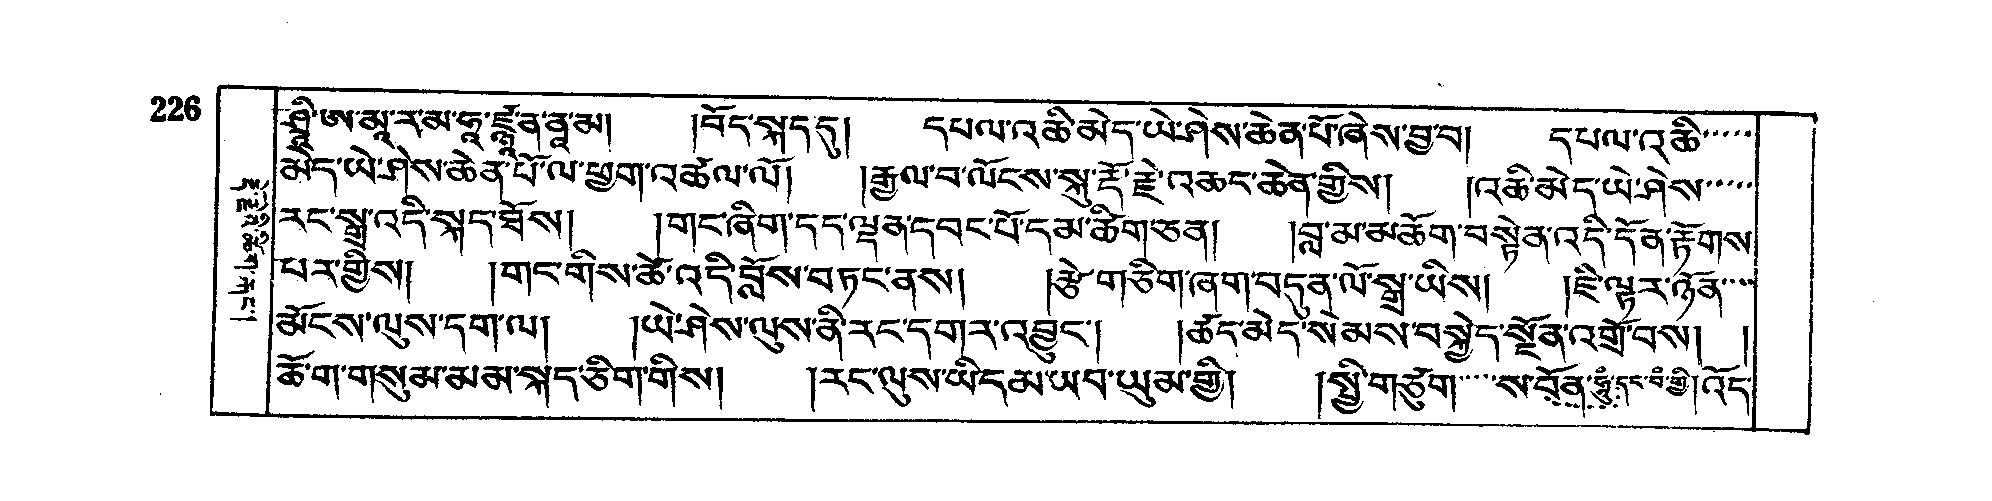 226
ཤྲཱི་ཨ་མཱ་ར་མ་ཧཱ་ཛྙཱ་ན་ནཱ་མ། །བོད་སྐད་དུ། དཔལ་འཆི་མེད་ཡེ་ཤེས་ཆེན་པོ་ཞེས་བྱ་བ། དཔལ་འཆི་
མེད་ཡེ་ཤེས་ཆེན་པོ་ལ་ཕྱག་འཚལ་ལོ། །རྒྱལ་བ་ལོངས་སྐུ་རྡོ་རྗེ་འཆང་ཆེན་གྱིས། །འཆི་མེད་ཡེ་ཤེས་
རང་སྒྲ་འདི་སྐད་ཐོས། །གང་ཞིག་དད་ལྡན་དབང་པོ་དམ་ཚིག་ཅན། །བླ་མ་མཆོག་བསྟེན་འདི་དོན་རྟོགས
པར་གྱིས། །གང་གིས་ཚེ་འདི་བློས་བཏང་ནས། །རྩེ་གཅིག་ཞག་བདུན་ལོ་སྒྲ་ཡིས། །ཇི་ལྟར་ཉོན་
མོངས་ལུས་དག་ལ། །ཡེ་ཤེས་ལུས་ནི་རང་དགར་འབྱུང་། །ཚད་མེད་སེམས་བསྐྱེད་སྔོན་འགྲོ་བས། །
ཆོ་ག་གསུམ་མམ་སྐད་ཅིག་གིས། །རང་ལུས་ཡིདམ་ཡབ་ཡུམ་གྱི། །སྤྱི་གཙུག་ས་བོན་ཧཱུྃ་དང་བཾ་གྱི། འོད